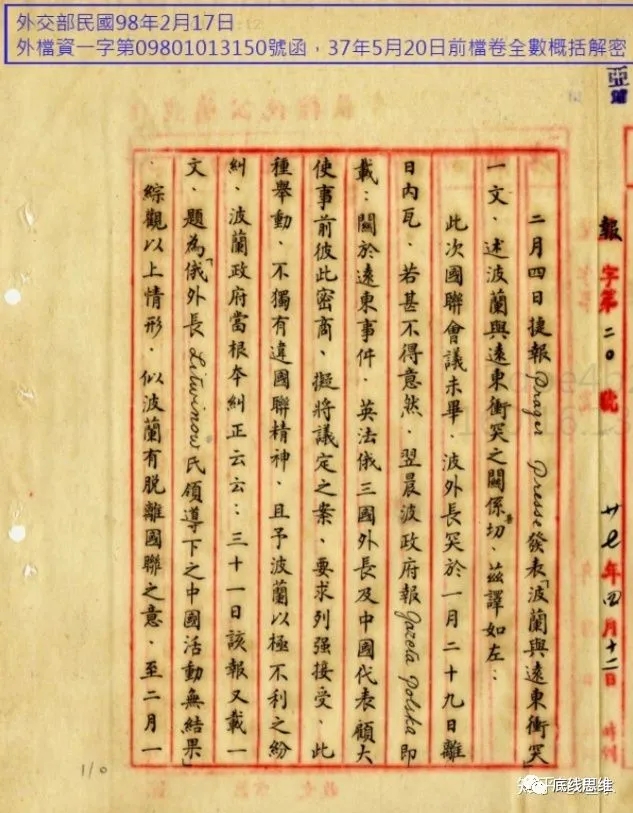 外交部民國98年2月17日
外檔資一字第09801013150號函，37年5月20日前檔卷全數概括解密
亞
報字第二0號 廿七年四月十二日
二月四日捷報Prager Presse發表「波蘭與遠東衝突」
一文、述波蘭與遠東衝突之關係切、茲譯如左：
此次國聯會議未畢、波外長突於一月二十九日離
日內瓦、若甚不得意然、翌晨波政府報Gazeta Polska即
載：關於遠東事件、英法俄三國外長及中國代表顧大
使事前彼此密商、擬將議定之案、要求列强接受、此
種舉動、不獨有違國聯精神、且予波蘭以極不利之紛
糾、波蘭政府當根本糾正云云：三十一日該報又載一
文、題為「俄外長Litwinow氏領導下之中國活動無結果」
綜觀以上情形、似波蘭有脫離國聯之意、至二月一
110
底线思维